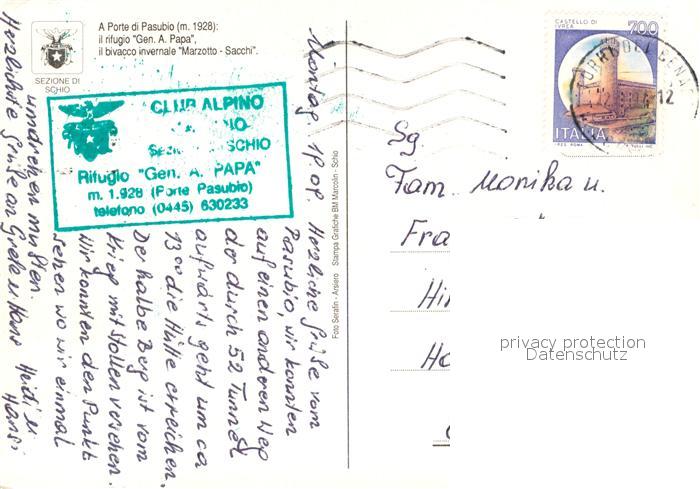 A Porte di Pasubio (m. 1928):
il rifugio "Gen. A. Papa",
il bivacco invernale "Marzotto - Sacchi".
SEZIONE DI
SCHIO
CLUB ALPINO
SCHIO
Rifugio "Gen. A. PAPA"
m. 1.928 (Porte Pasubio)
telefono (0445) 630233
Montag, Herzliche Grüße vom
Pasubio, wir konnten
auf einen anderen Weg
der durch 52 Tunnel
aufwärts geht um ca
13⁰⁰ die Hütte erreichen.
Der halbe Berg ist vom
Krieg mit Stollen versehen.
Wir konnten den Punkt
sehen wo wir einmal
umdrehen mußten.
Herzlichste Grüße an Grete u Hans Heidi u
Hansi
Foto Serafin - Arsiero Stampa Grafiche BM Marcolin - Schio
CASTELLO DI
IVREA
700
ITALIA
12
Sg.
Fam. Monika u.
Fra
Hi
Ha
privacy protection
Datenschutz